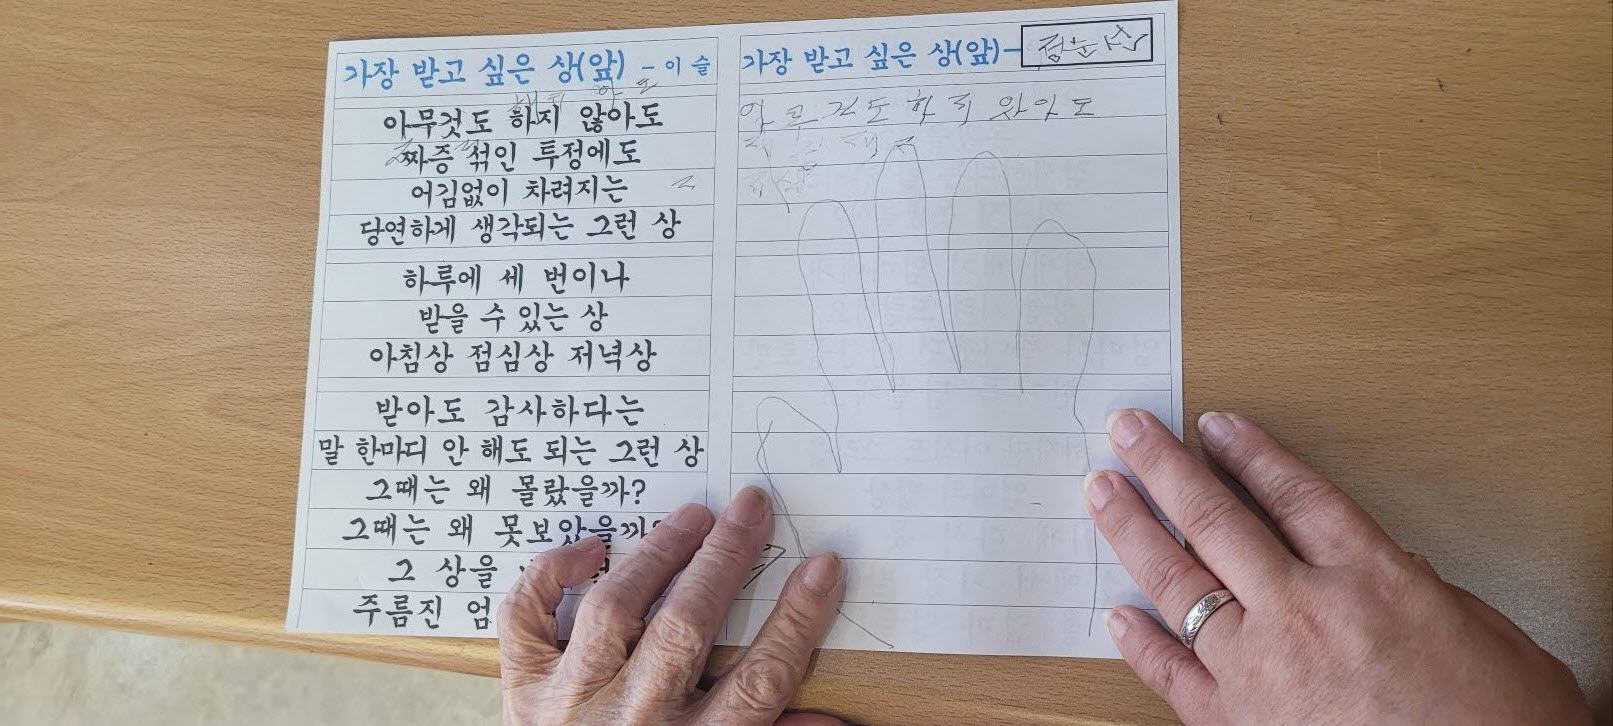 가장 받고 싶은 상(앞) - 이 슬
아무것도 하지 않아도
짜증 섞인 투정에도
어김없이 차려지는
당연하게 생각되는 그런 상
하루에 세 번이나
받을 수 있는 상
아침상 점심상 저녁상
받아도 감사하다는
말 한마디 안 해도 되는 그런 상
그때는 왜 몰랐을까?
그때는 왜 못보았을까?
그 상을
주름진 엄
가장 받고 싶은 상(앞) -